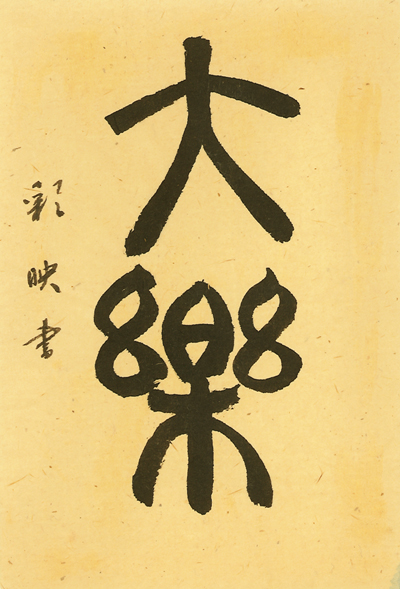 大樂
彩映書